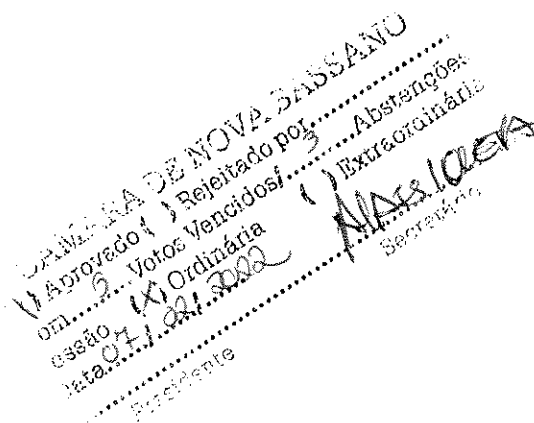 CAMARA DE NOVA BASSANO
Aprovado ( ) Rejeitado por..........
om..... 3 .....Votos Vencidos/..... 3 .....Abstenções
essão (X) Ordinária ( ) Extraordinária
Data 07 / / 2022
Secretário
Presidente